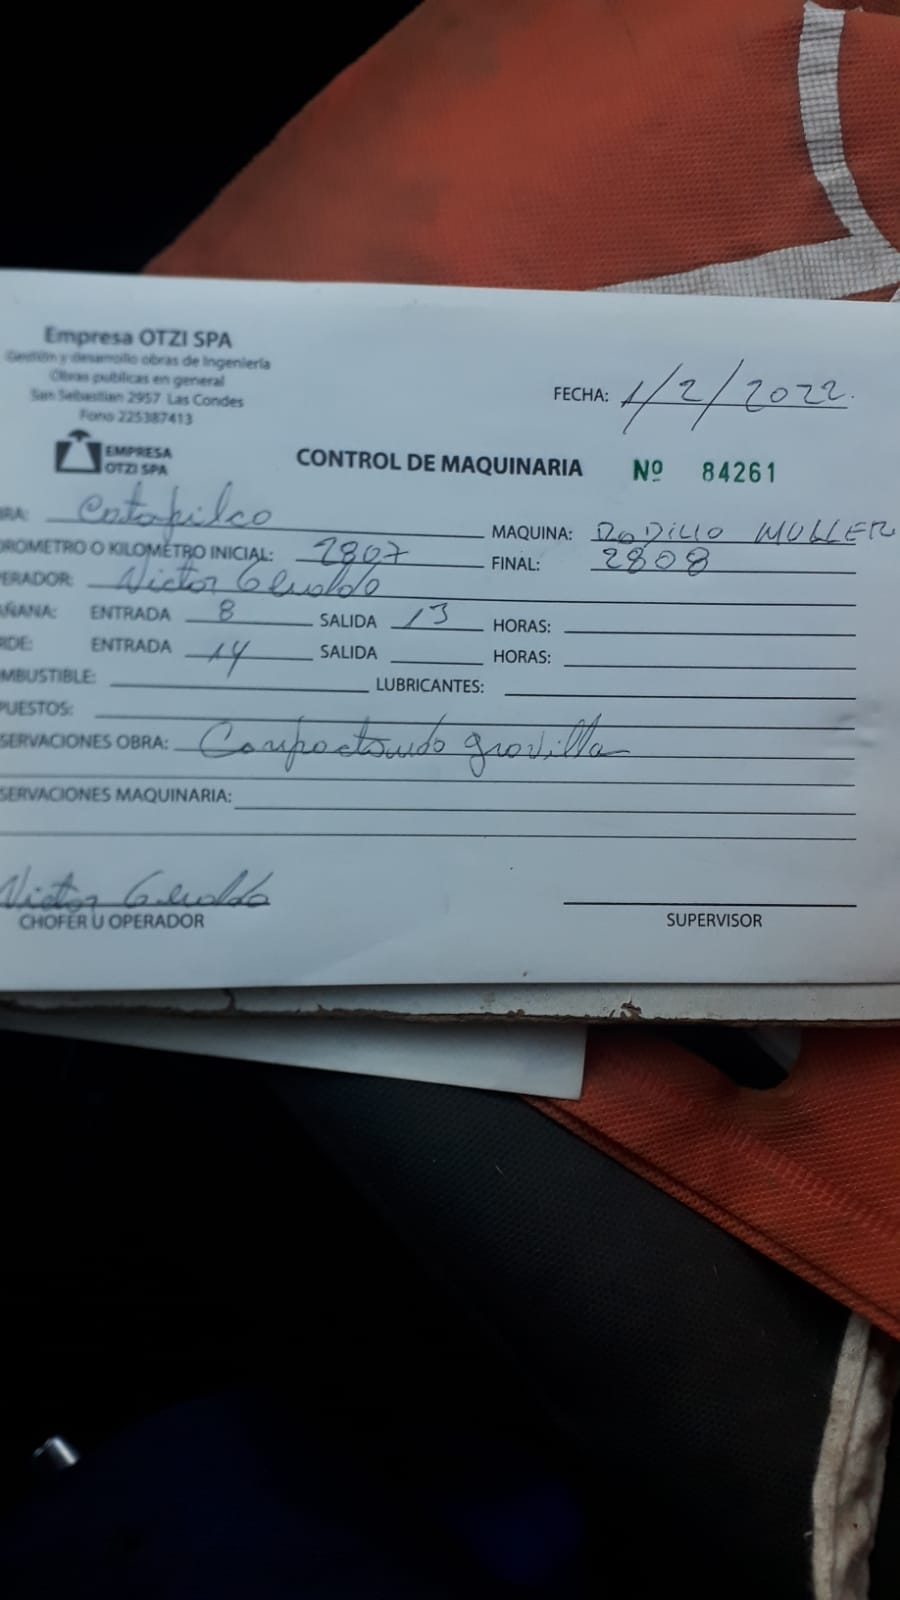 Empresa OTZI SPA
Gestión y desarrollo obras de Ingeniería
Obras publicas en general
San Sebastian 2957 Las Condes
Fono 225387413
EMPRESA
OTZI SPA
FECHA: 1/2/2022.
CONTROL DE MAQUINARIA Nº 84261
RA: Catapilco MAQUINA: RODILLO MULLER
OROMETRO O KILOMETRO INICIAL: 2807 FINAL: 2808
PERADOR: Victor
AÑANA: ENTRADA 8 SALIDA 13 HORAS:
RDE: ENTRADA 14 SALIDA HORAS:
MBUSTIBLE: LUBRICANTES:
PUESTOS:
SERVACIONES OBRA: Compactando gravilla
SERVACIONES MAQUINARIA:
Victor
CHOFER U OPERADOR SUPERVISOR